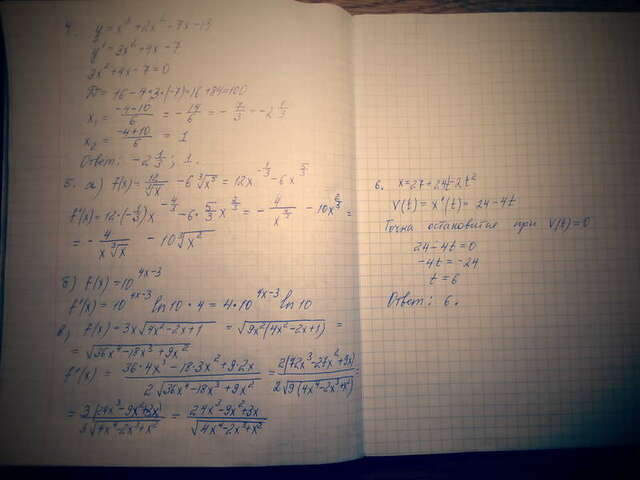 4. y = x³ + 2x² - 7x - 13
y' = 3x² + 4x - 7
3x² + 4x - 7 = 0
D = 16 - 4·3·(-7) = 16 + 84 = 100
x₁ = (-4-10)/6 = -14/6 = -7/3 = -2 1/3
x₂ = (-4+10)/6 = 1
Ответ: -2 1/3; 1.
5. а) f(x) = 12/∛x - 6∛x⁵ = 12x^(-1/3) - 6x^(5/3)
f'(x) = 12·(-1/3)x^(-4/3) - 6·5/3 x^(2/3) = -4/x^(4/3) - 10x^(2/3) =
= -4/(x∛x) - 10∛x²
б) f(x) = 10^(4x-3)
f'(x) = 10^(4x-3) ln10·4 = 4·10^(4x-3) ln10
в) f(x) = 3x√(4x²-2x+1) = √(9x²(4x²-2x+1)) =
= √(36x⁴-18x³+9x²)
f'(x) = (36·4x³-18·3x²+9·2x)/(2√(36x⁴-18x³+9x²)) = 2(72x³-27x²+9x)/(2√(9(4x⁴-2x³+x²))) =
= 3(24x³-9x²+3x)/(3√(4x⁴-2x³+x²)) = (24x³-9x²+3x)/√(4x⁴-2x³+x²)
6. x = 27 + 24t - 2t²
V(t) = x'(t) = 24 - 4t
Точка остановится при V(t) = 0
24 - 4t = 0
-4t = -24
t = 6
Ответ: 6.